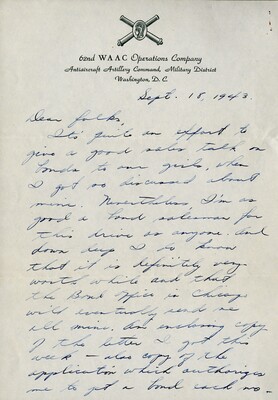 62nd WAAC Operations Company
Antiaircraft Artillery Command, Military District
Washington, D. C.
Sept. 18, 1943.
Dear folks,
It's quite an effort to
give a good sales talk on
bonds to our girls, when
I got so discussed about
mine. Nevertheless, I'm as
good a bond salesman for
this drive as anyone, and
down deep I do know
that it is definitely very
worth while and that
the Bond Office in Chicago
will eventually send me
all mine. Am enclosing copy
of the letter I got this
week — also copy of the
application which authorizes
me to get a bond each mo.-